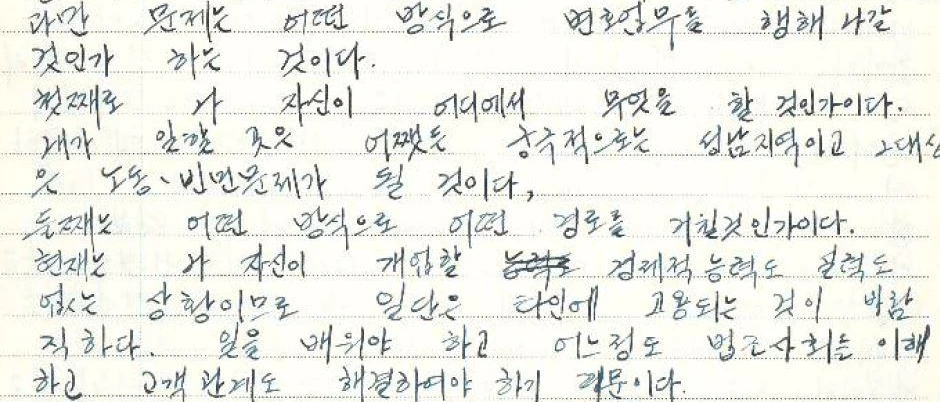 과간 문제는 어떤 방식으로 변호업무를 행해 나갈
것인가 하는 것이다.
첫째로 나 자신이 어디에서 무엇을 할 것인가이다.
내가 일할 곳은 어쨌든 궁극적으로는 성남지역이고 그대상
은 노동·빈민문제가 될 것이다,
둘째는 어떤 방식으로 어떤 경로를 거칠것인가이다.
현재는 나 자신이 개업할 능력도 경제적능력도 실력도
없는 상황이므로 일단은 타인에 고용되는 것이 바람
직하다. 일을 배워야 하고 어느정도 법조사회를 이해
하고 고객관계도 해결하여야 하기 때문이다.